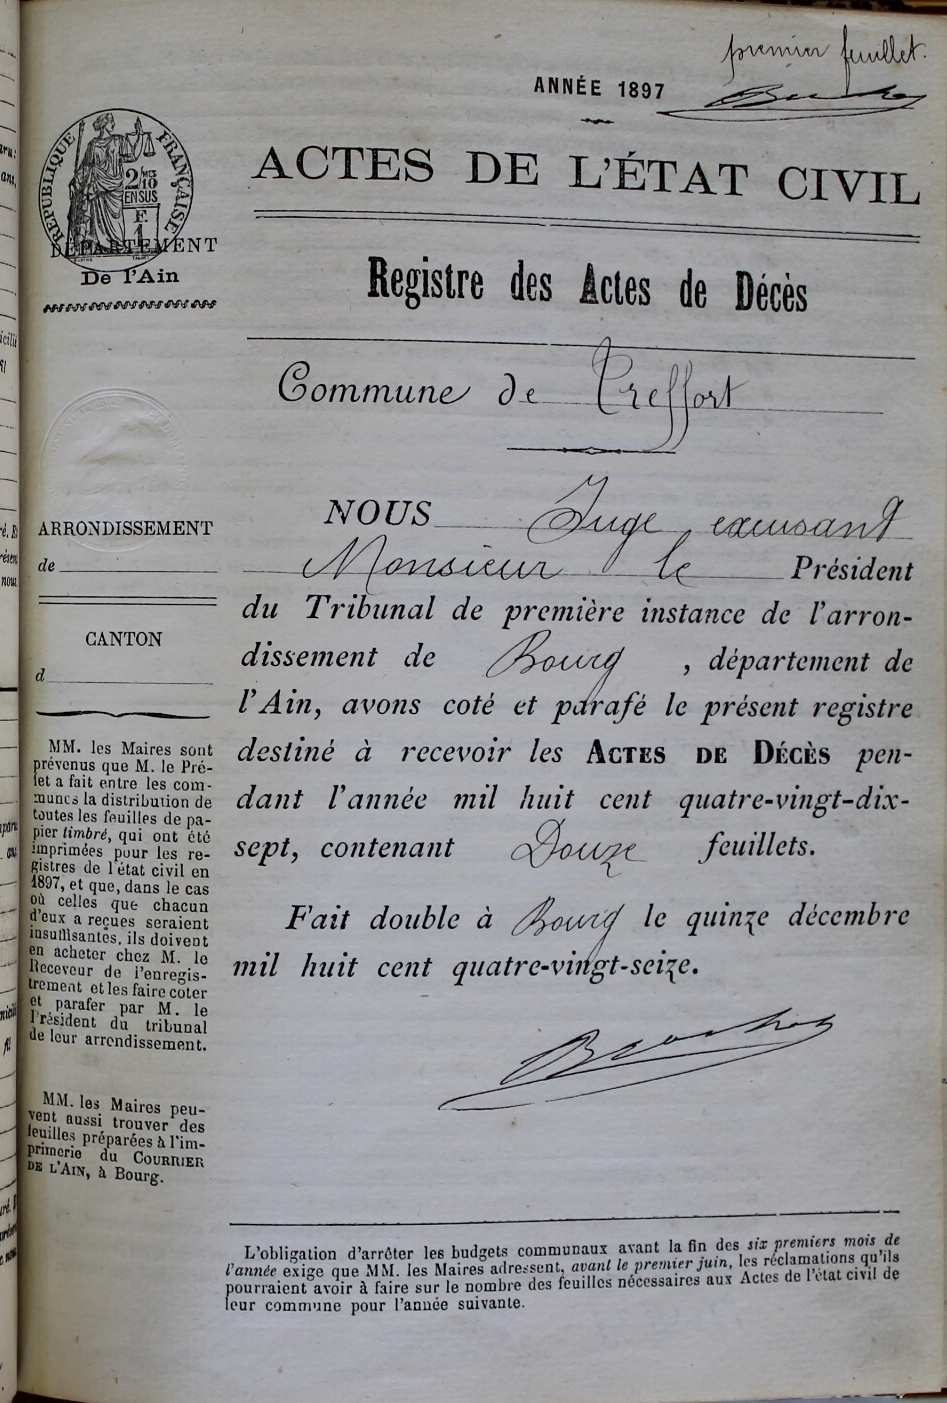 premier feuillet.
ANNÉE 1897
RÉPUBLIQUE FRANÇAISE
2/10
EN SUS
F.
1
ACTES DE L'ÉTAT CIVIL
DÉPARTEMENT
De l'Ain
Registre des Actes de Décès
Commune de Treffort
ARRONDISSEMENT
de
CANTON
d
MM. les Maires sont
prévenus que M. le Pré-
fet a fait entre les com-
munes la distribution de
toutes les feuilles de pa-
pier timbré, qui ont été
imprimées pour les re-
gistres de l'état civil en
1897, et que, dans le cas
où celles que chacun
d'eux a reçues seraient
insuffisantes, ils doivent
en acheter chez M. le
Receveur de l'enregis-
trement et les faire coter
et parafer par M. le
Président du tribunal
de leur arrondissement.
MM. les Maires peu-
vent aussi trouver des
feuilles préparées à l'im-
primerie du COURRIER
DE L'AIN, à Bourg.
NOUS Juge excusant
Monsieur le Président
du Tribunal de première instance de l'arron-
dissement de Bourg, département de
l'Ain, avons coté et parafé le présent registre
destiné à recevoir les ACTES DE DÉCÈS pen-
dant l'année mil huit cent quatre-vingt-dix-
sept, contenant Douze feuillets.
Fait double à Bourg le quinze décembre
mil huit cent quatre-vingt-seize.
L'obligation d'arrêter les budgets communaux avant la fin des six premiers mois de
l'année exige que MM. les Maires adressent, avant le premier juin, les réclamations qu'ils
pourraient avoir à faire sur le nombre des feuilles nécessaires aux Actes de l'état civil de
leur commune pour l'année suivante.